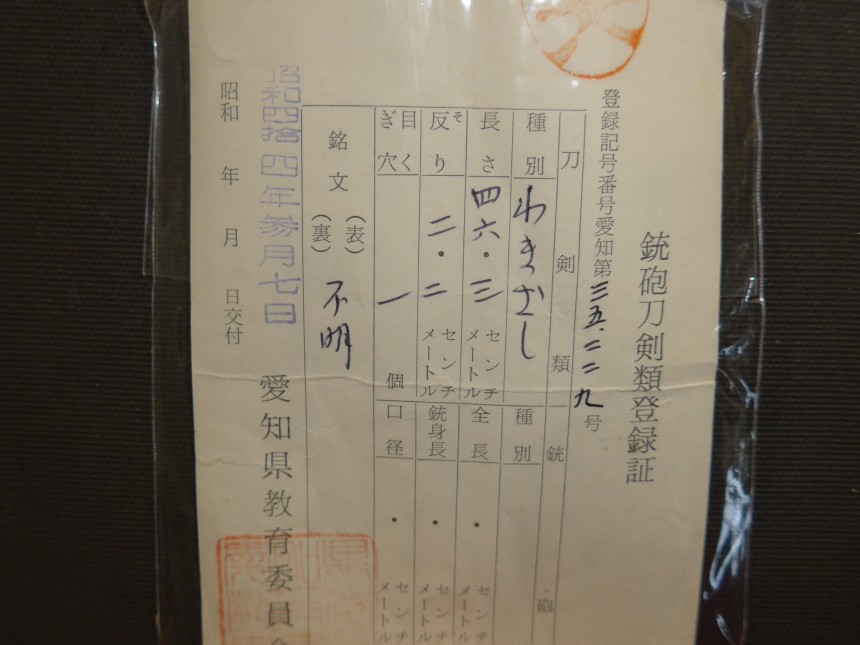 銃砲刀剣類登録証
登録記号番号愛知第三五・二二九号
刀剣類
銃砲
種別 わきざし
種別
長さ 四六・三 センチメートル
全長 ・ センチメートル
反り 二・二 センチメートル
そ
銃身長 ・ センチメートル
目くぎ穴 一 個
口径 ・ センチメートル
銘文 (表)
(裏) 不明
愛知県教育委員
昭和四拾四年参月七日
昭和 年 月 日交付